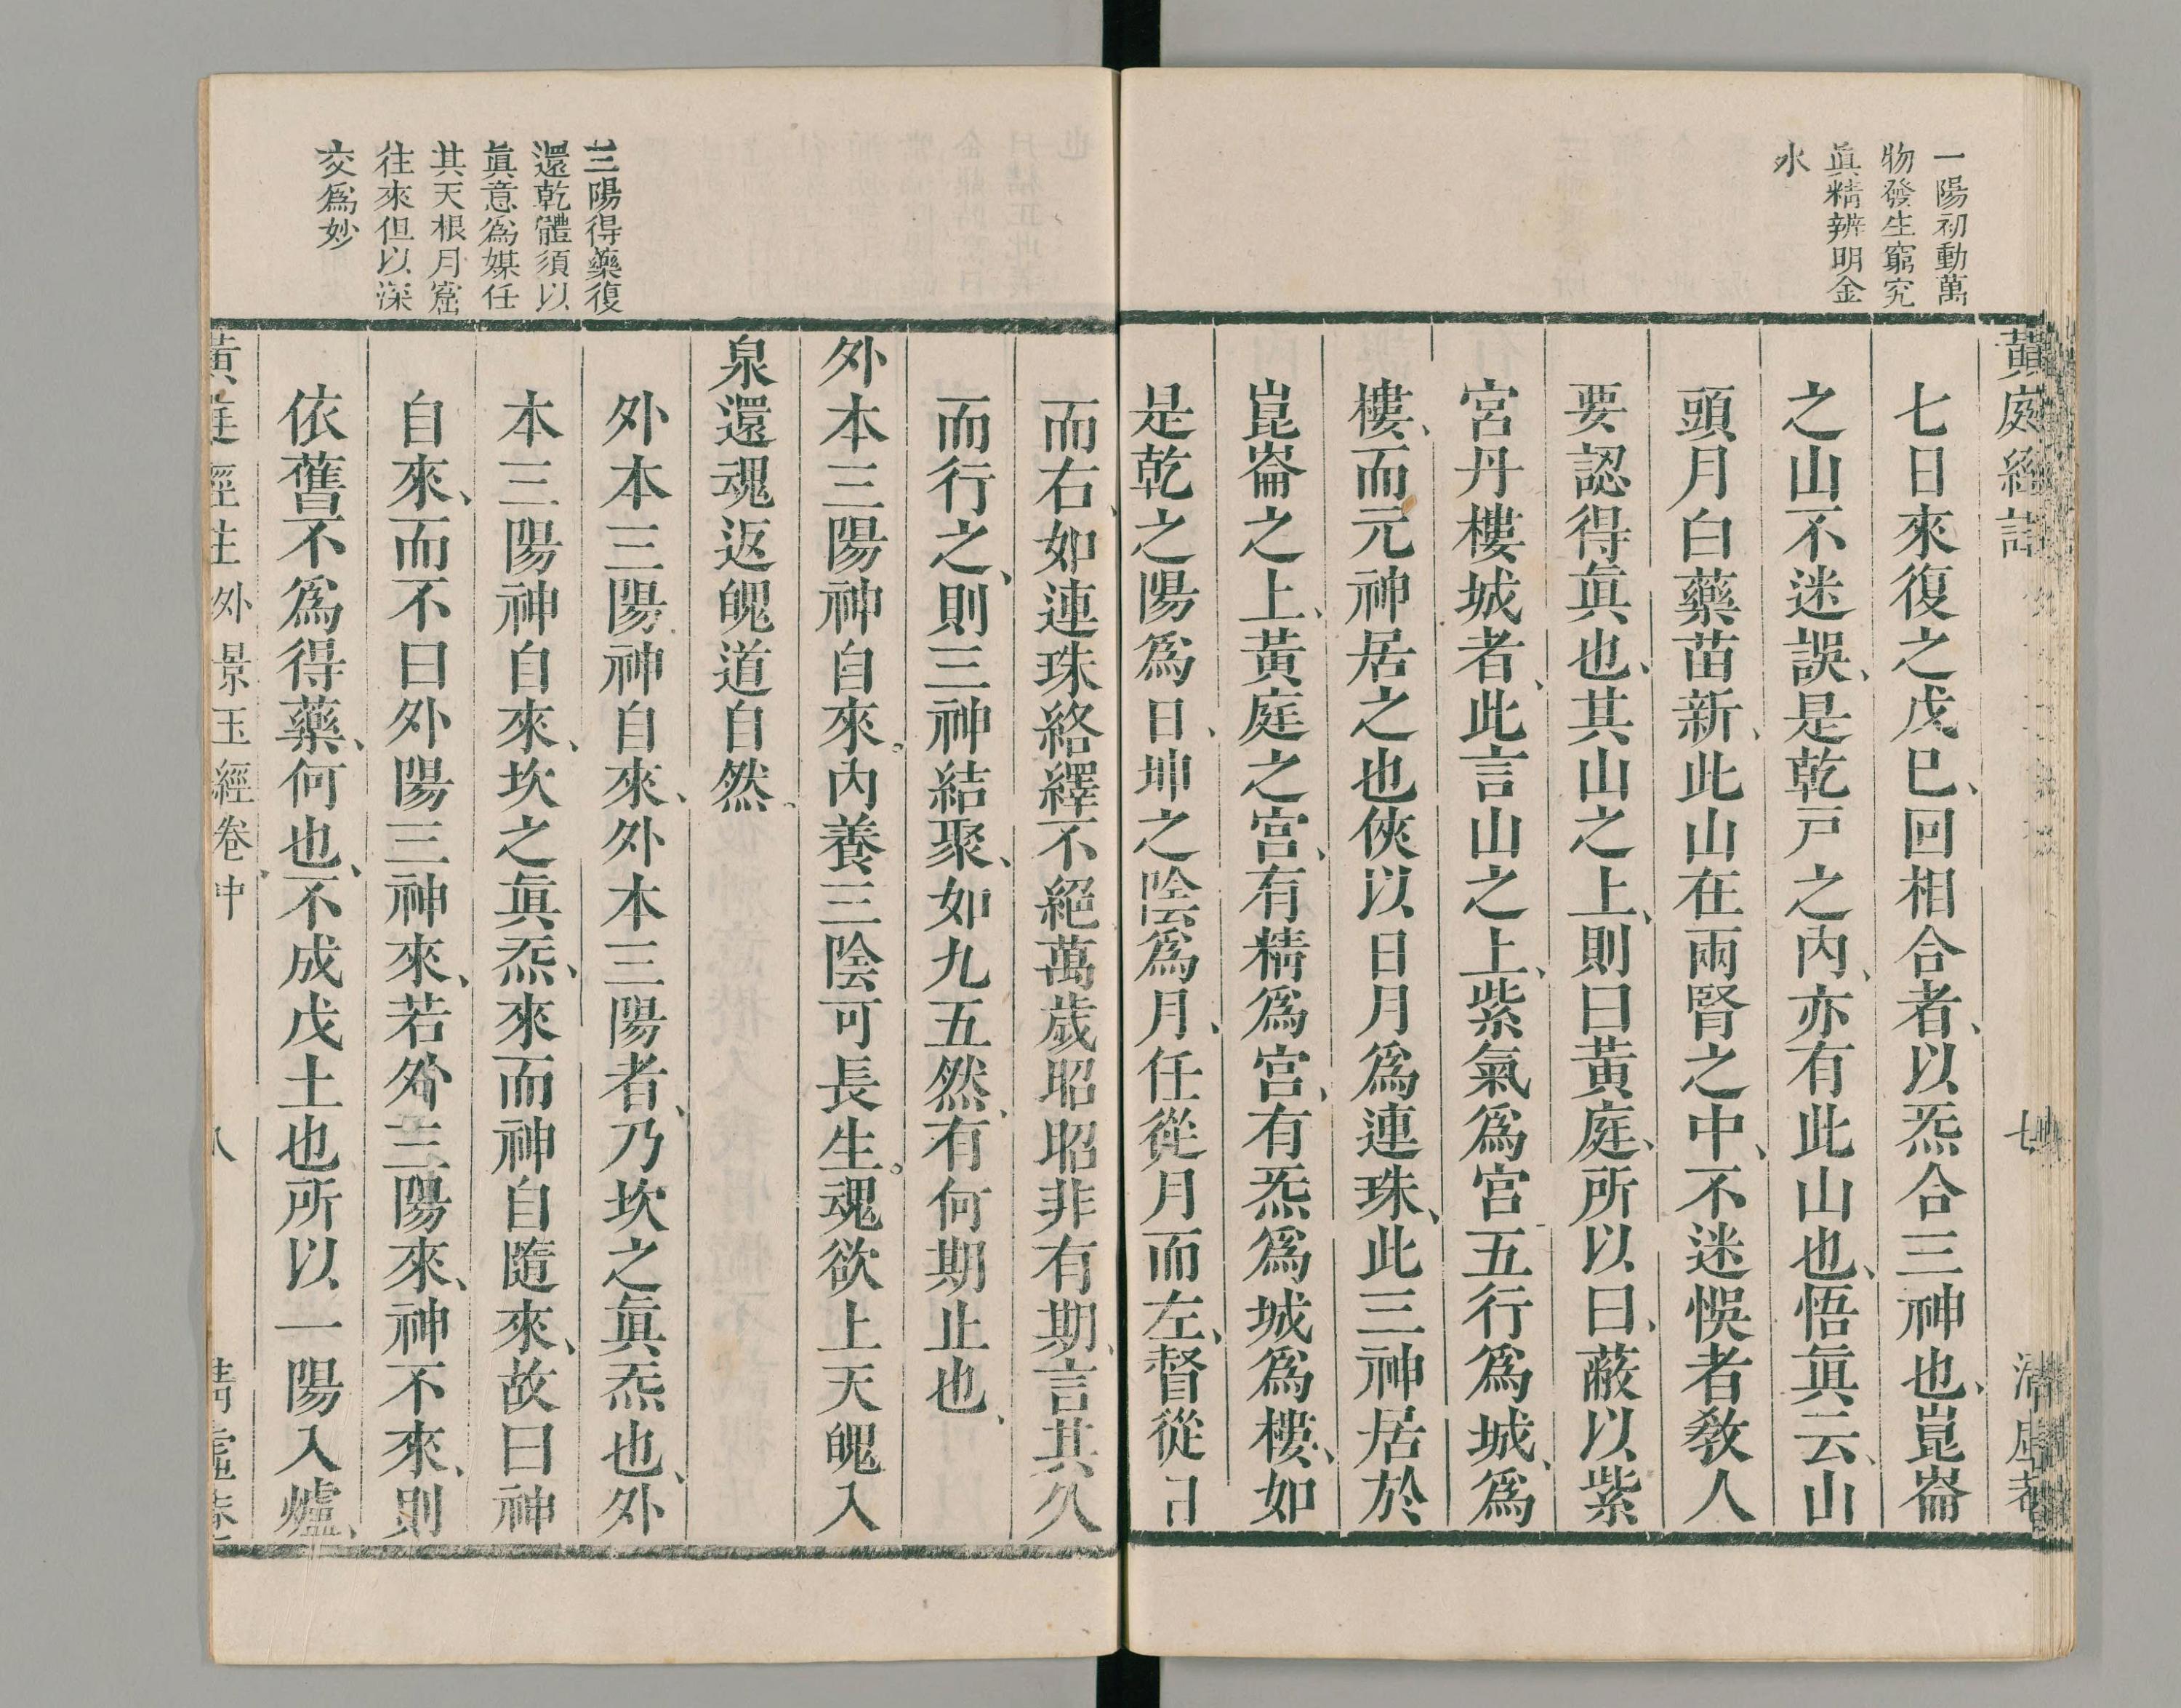 一陽初動萬
物發生窮究
眞精辨明金
水
黃庭經註
七
七日來復之戊巳、回相合者、以炁合三神也、崑崙
之山不迷誤、是乾戸之內、亦有此山也、悟眞云、山
頭月白藥苗新、此山在兩腎之中、不迷悞者敎人
要認得眞也、其山之上、則曰黃庭、所以曰、蔽以紫
宮丹樓城者、此言山之上、紫氣爲宮五行爲城、爲
樓、而元神居之也俠以日月爲連珠、此三神居於
崑崙之上、黃庭之宮、有精爲宮、有炁爲城爲樓、如
是乾之陽爲日、坤之陰爲月、任從月而左、督從日
三陽得藥復
還乾體須以
眞意爲媒任
其天根月窟
往來但以深
交爲妙
而右、如連珠絡繹不絕萬歲昭昭非有期、言其久
而行之、則三神結聚、如九五然、有何期止也、
外本三陽神自來。內養三陰可長生。魂欲上天魄入
泉還魂返魄道自然、
外本三陽神自來、外本三陽者、乃坎之眞炁也、外
本三陽神自來、坎之眞炁、來而神自隨來、故曰神
自來、而不曰外陽三神來、若外三陽來、神不來、則
依舊不爲得藥、何也、不成戊土也所以一陽入爐、
黃庭經註 外景玉經卷中
八